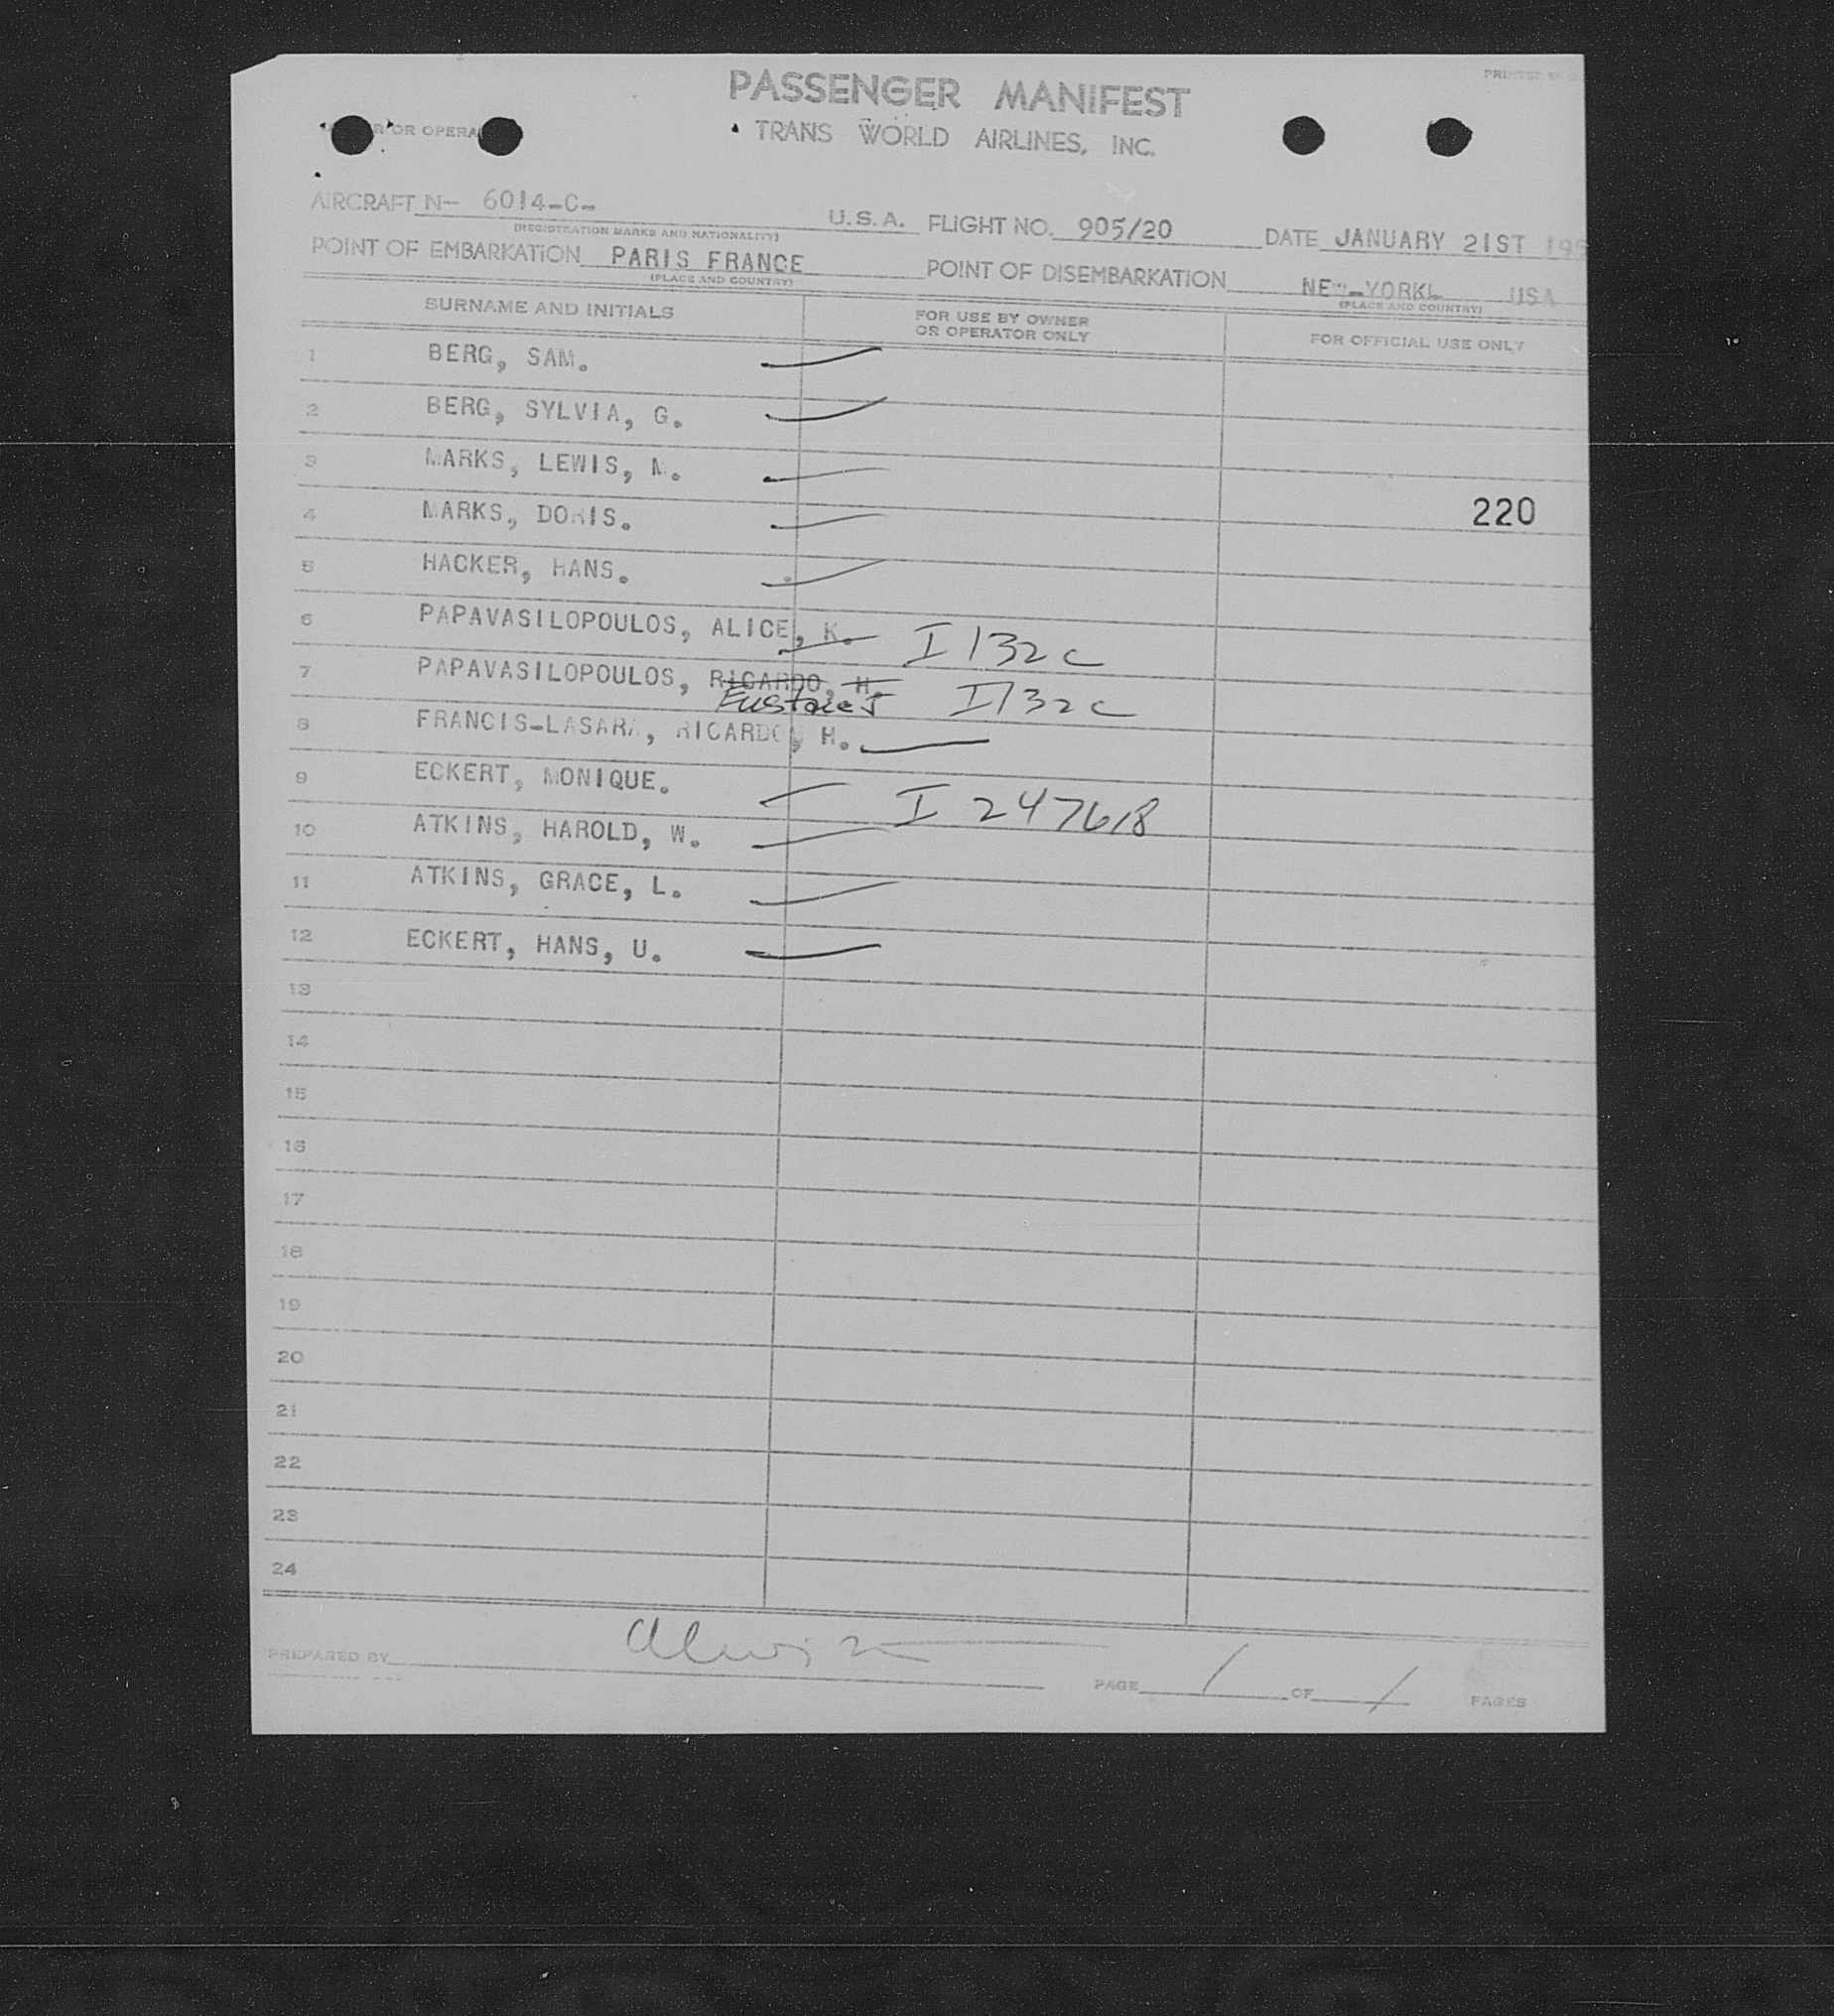 PASSENGER MANIFEST
TRANS WORLD AIRLINES, INC.
OR OPERA
AIRCRAFT N- 6014-C- U.S.A. FLIGHT NO. 905/20 DATE JANUARY 21ST 195
(REGISTRATION MARKS AND NATIONALITY)
POINT OF EMBARKATION PARIS FRANCE POINT OF DISEMBARKATION NEW-YORKL USA
(PLACE AND COUNTRY) (PLACE AND COUNTRY)
SURNAME AND INITIALS FOR USE BY OWNER OR OPERATOR ONLY FOR OFFICIAL USE ONLY
1 BERG, SAM.
2 BERG, SYLVIA, G.
3 MARKS, LEWIS, M.
4 MARKS, DORIS. 220
5 HACKER, HANS.
6 PAPAVASILOPOULOS, ALICE, K. I 132c
7 PAPAVASILOPOULOS, RICARDO, H. I 132c
8 FRANCIS-LASARA, RICARDO, H.
9 ECKERT, MONIQUE. I 247618
10 ATKINS, HAROLD, W.
11 ATKINS, GRACE, L.
12 ECKERT, HANS, U.
13
14
15
16
17
18
19
20
21
22
23
24
PREPARED BY PAGE 1 OF 1 PAGES